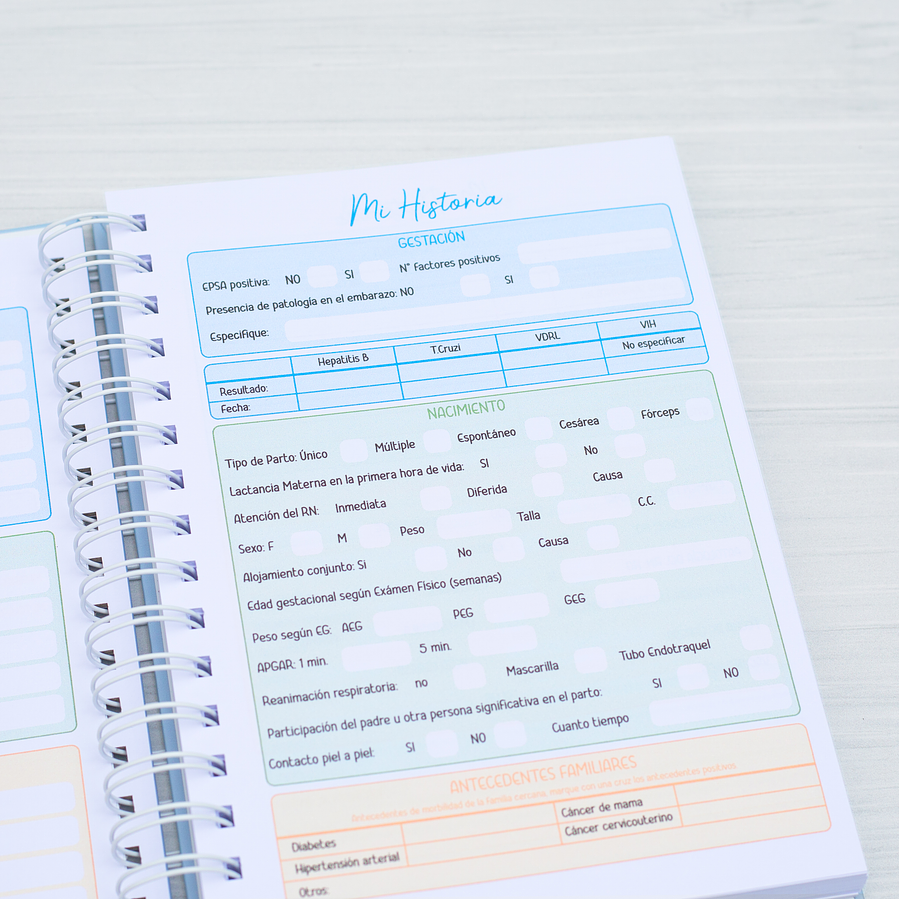 Mi Historia
GESTACIÓN
EPSA positiva: NO SI N° Factores positivos
Presencia de patología en el embarazo: NO SI
Especifique:
Hepatitis B T.Cruzi VDRL VIH
Resultado: No especificar
Fecha:
NACIMIENTO
Tipo de Parto: Único Múltiple Espontáneo Cesárea Fórceps
Lactancia Materna en la primera hora de vida: SI No
Atención del RN: Inmediata Diferida Causa
Sexo: F M Peso Talla C.C.
Alojamiento conjunto: Si No Causa
Edad gestacional según Exámen Físico (semanas)
Peso según EG: AEG PEG GEG
APGAR: 1 min. 5 min.
Reanimación respiratoria: no Mascarilla Tubo Endotraquel
Participación del padre u otra persona significativa en el parto: SI NO
Contacto piel a piel: SI NO Cuanto tiempo
ANTECEDENTES FAMILIARES
Antecedentes de morbilidad de la familia cercana, marque con una cruz los antecedentes positivos
Diabetes Cáncer de mama
Hipertensión arterial Cáncer cervicouterino
Otros: